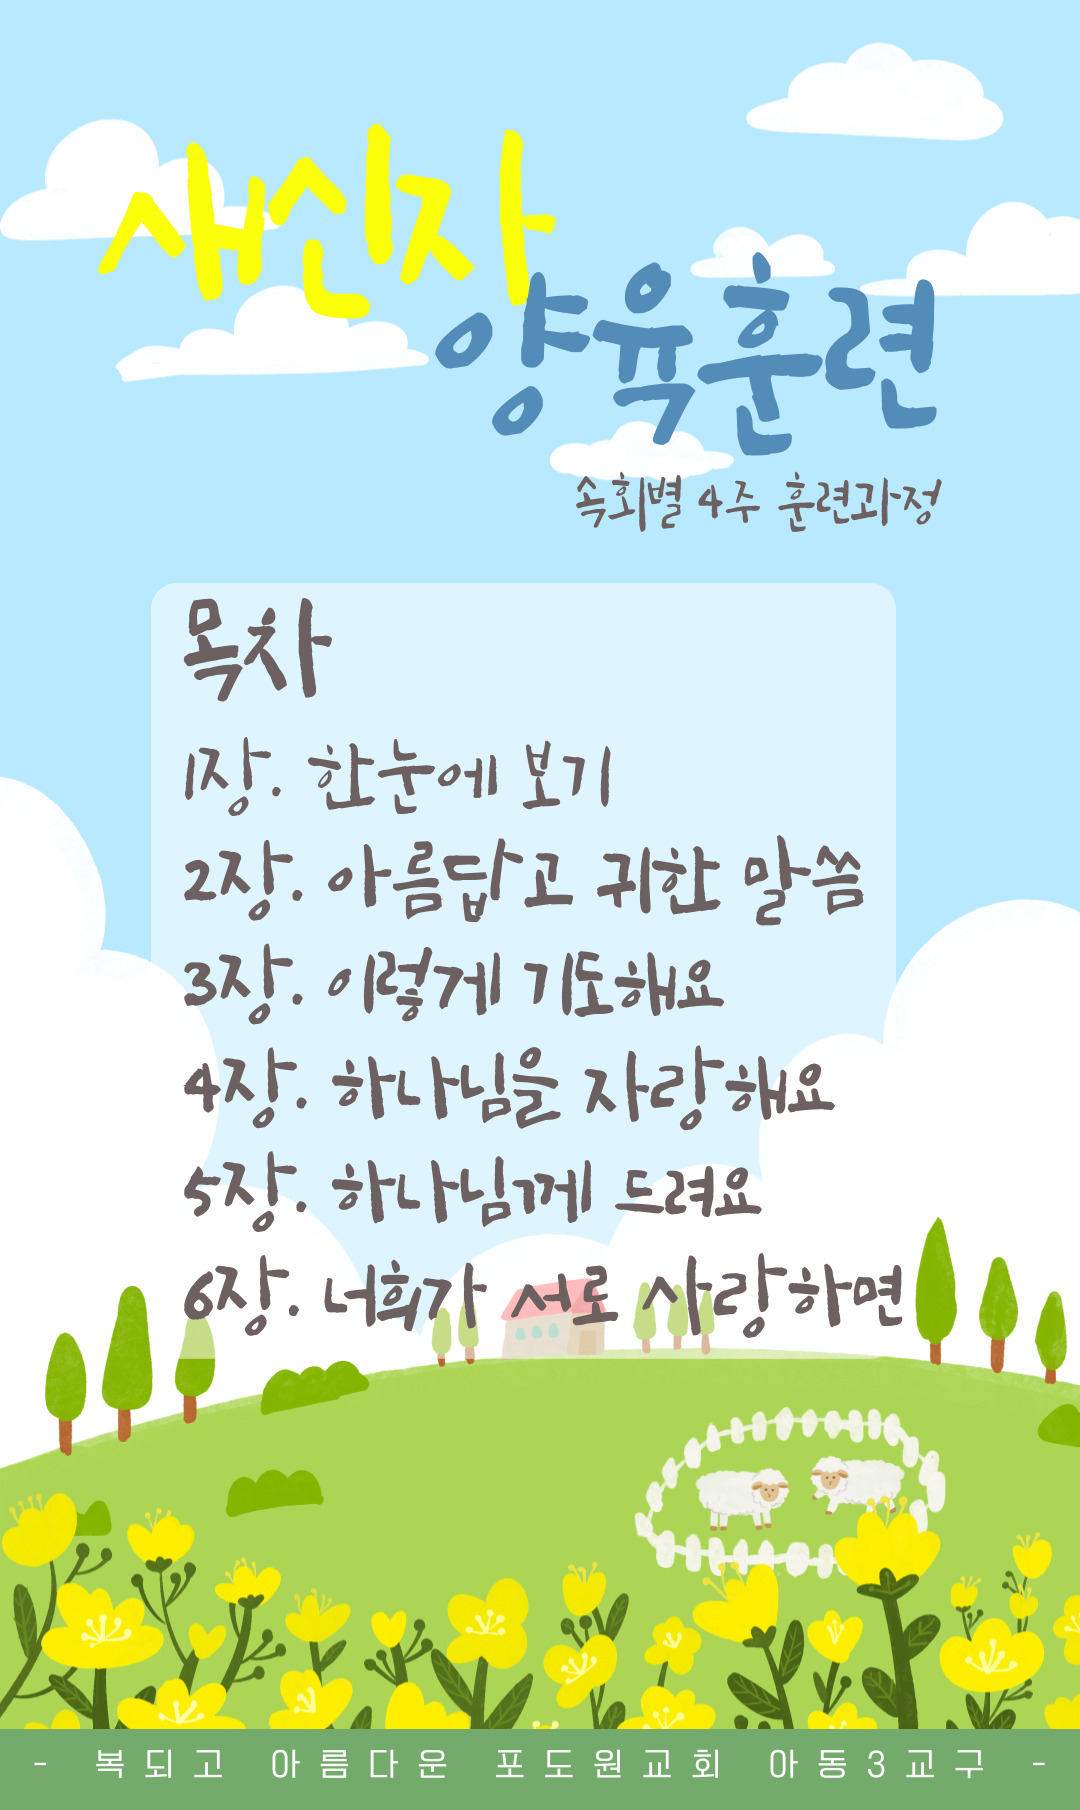 새신자
양육훈련
속회별 4주 훈련과정
목차
1장. 한눈에 보기
2장. 아름답고 귀한 말씀
3장. 이렇게 기도해요
4장. 하나님을 자랑해요
5장. 하나님께 드려요
6장. 너희가 서로 사랑하면
- 복되고 아름다운 포도원교회 아동3교구 -